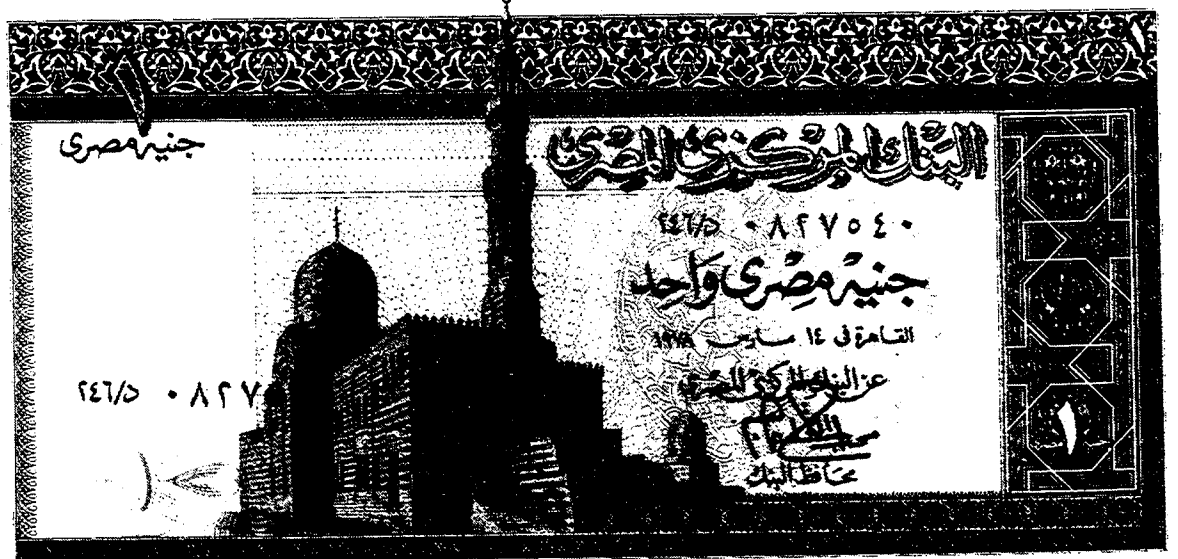 ١
١
جنيه مصرى
البنك المركزى المصرى
٢٤٦/د ٠٨٢٧٥٤٠
جنيه مصرى واحد
القاهرة فى ١٤ مارس ١٩٧٨
عن البنك المركزى المصرى
محافظ البنك
٢٤٦/د ٠٨٢٧
١